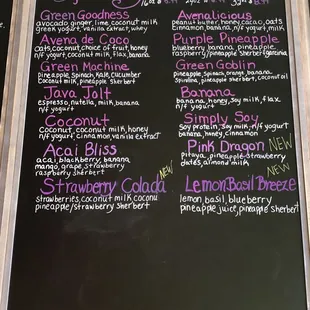 Green Goodness
avocado, ginger, lime, coconut milk
greek yogurt, vanilla extract, whey
Avena de Coco
oats, coconut, choice of fruit, honey
n/f yogurt, coconut milk, flax, banana
Green Machine
pineapple, spinach, kale, cucumber
coconut milk, pineapple sherbert
Java Jolt
espresso, nutella, milk, banana
n/f yogurt
Coconut
coconut, coconut milk, honey
cinnamon, banana, vanilla extract
Acai Bliss
acai, blackberry, banana,
mango, grape, strawberry
raspberry sherbert
Strawberry Colada NEW
strawberries, coconut, coconut milk
pineapple/strawberry sherbert
Avenalicious
peanut butter, honey, cacao, oats
cinnamon, banana, n/f yogurt, milk
Purple Pineapple
blueberry, banana, pineapple,
raspberry/pineapple sherbert
Green Goblin
pineapple, spinach, orange, banana
spirulina, pineapple sherbert, coconut oil
Banana
banana, honey, soy milk, flax
n/f yogurt
Simply Soy
soy protein, soy milk, n/f yogurt
banana, honey, cinnamon
Pink Dragon NEW
pitaya, pineapple, strawberry
dates, almond milk
NEW
Lemon Basil Breeze
lemon, basil, blueberry
pineapple juice, pineapple sherbert